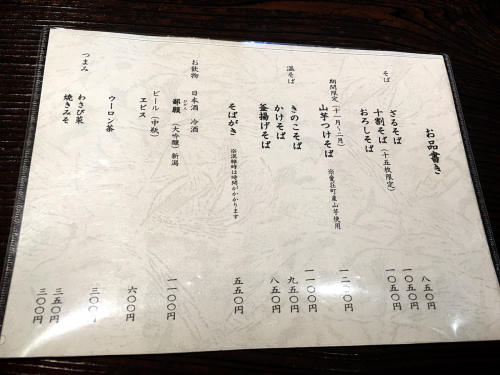 お品書き
そば
ざるそば 八五〇円
十割そば (十五枚限定) 一〇五〇円
おろしそば 一〇五〇円
期間限定 (十一月～二月)
山芋つけそば ※愛荘町産山芋使用 一二〇〇円
温そば
きのこそば 一一〇〇円
かけそば 九五〇円
釜揚げそば 八五〇円
そばがき ※混雑時は時間がかかります 五五〇円
お飲物 日本酒 冷酒
鄙願 (大吟醸) 新潟 一一〇〇円
ビール (中瓶)
ヱビス 六〇〇円
ウーロン茶 三〇〇
つまみ
わさび菜 三五〇円
焼きみそ 三〇〇円